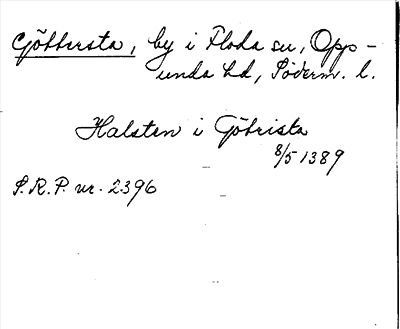 Göttersta, by i Floda sn, Opp-
unda hd, Söderm. l.
Halsten i Götrista
8/5 1389
S.R.P. nr. 2396